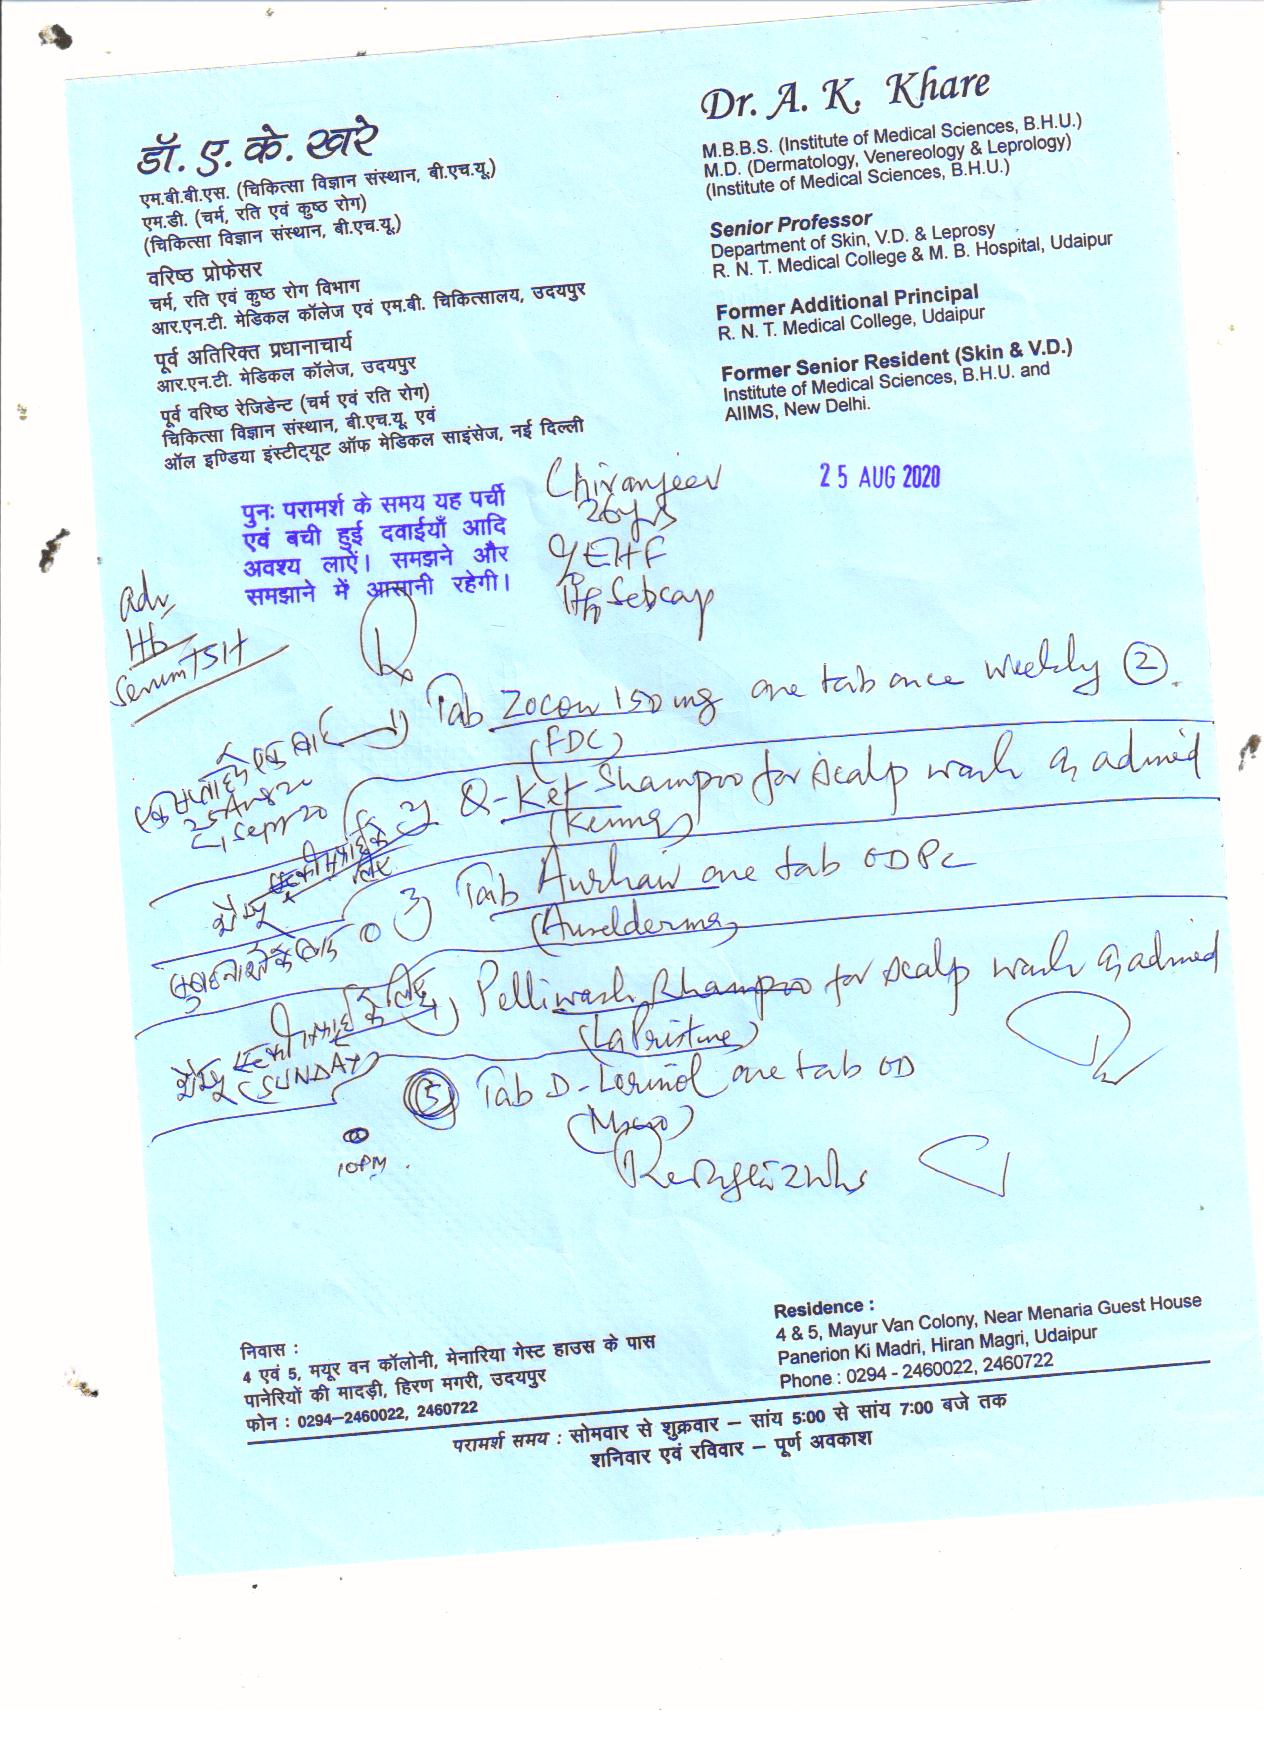 डॉ. ए. के. खरे
एम.बी.बी.एस. (चिकित्सा विज्ञान संस्थान, बी.एच.यू.)
एम.डी. (चर्म, रति एवं कुष्ठ रोग)
(चिकित्सा विज्ञान संस्थान, बी.एच.यू.)
वरिष्ठ प्रोफेसर
चर्म, रति एवं कुष्ठ रोग विभाग
आर.एन.टी. मेडिकल कॉलेज एवं एम.बी. चिकित्सालय, उदयपुर
पूर्व अतिरिक्त प्रधानाचार्य
आर.एन.टी. मेडिकल कॉलेज, उदयपुर
पूर्व वरिष्ठ रेजिडेन्ट (चर्म एवं रति रोग)
चिकित्सा विज्ञान संस्थान, बी.एच.यू. एवं
ऑल इण्डिया इंस्टीट्यूट ऑफ मेडिकल साइंसेज, नई दिल्ली
Dr. A. K. Khare
M.B.B.S. (Institute of Medical Sciences, B.H.U.)
M.D. (Dermatology, Venereology & Leprology)
(Institute of Medical Sciences, B.H.U.)
Senior Professor
Department of Skin, V.D. & Leprosy
R. N. T. Medical College & M. B. Hospital, Udaipur
Former Additional Principal
R. N. T. Medical College, Udaipur
Former Senior Resident (Skin & V.D.)
Institute of Medical Sciences, B.H.U. and
AIIMS, New Delhi.
पुनः परामर्श के समय यह पर्ची
एवं बची हुई दवाईयाँ आदि
अवश्य लाऐं। समझने और
समझाने में आसानी रहेगी।
Chiranjeev
26yrs
25 AUG 2020
Adv
Hb
Serum TSH
Rx
1) Tab Zocon 150 mg one tab once weekly 2
(FDC)
25 Aug 20
1 Sept 20
Q-Ket Shampoo for scalp wash as advised
3) Tab Aurhair one tab OD PC
(Aurelderma)
Pelliwash Shampoo for scalp wash as advised
(La Pristine)
(SUNDAY)
5 Tab D-    one tab OD
10PM
निवास :
4 एवं 5, मयूर वन कॉलोनी, मेनारिया गेस्ट हाउस के पास
पानेरियों की मादड़ी, हिरण मगरी, उदयपुर
फोन : 0294-2460022, 2460722
Residence :
4 & 5, Mayur Van Colony, Near Menaria Guest House
Panerion Ki Madri, Hiran Magri, Udaipur
Phone : 0294 - 2460022, 2460722
परामर्श समय : सोमवार से शुक्रवार – सांय 5:00 से सांय 7:00 बजे तक
शनिवार एवं रविवार – पूर्ण अवकाश